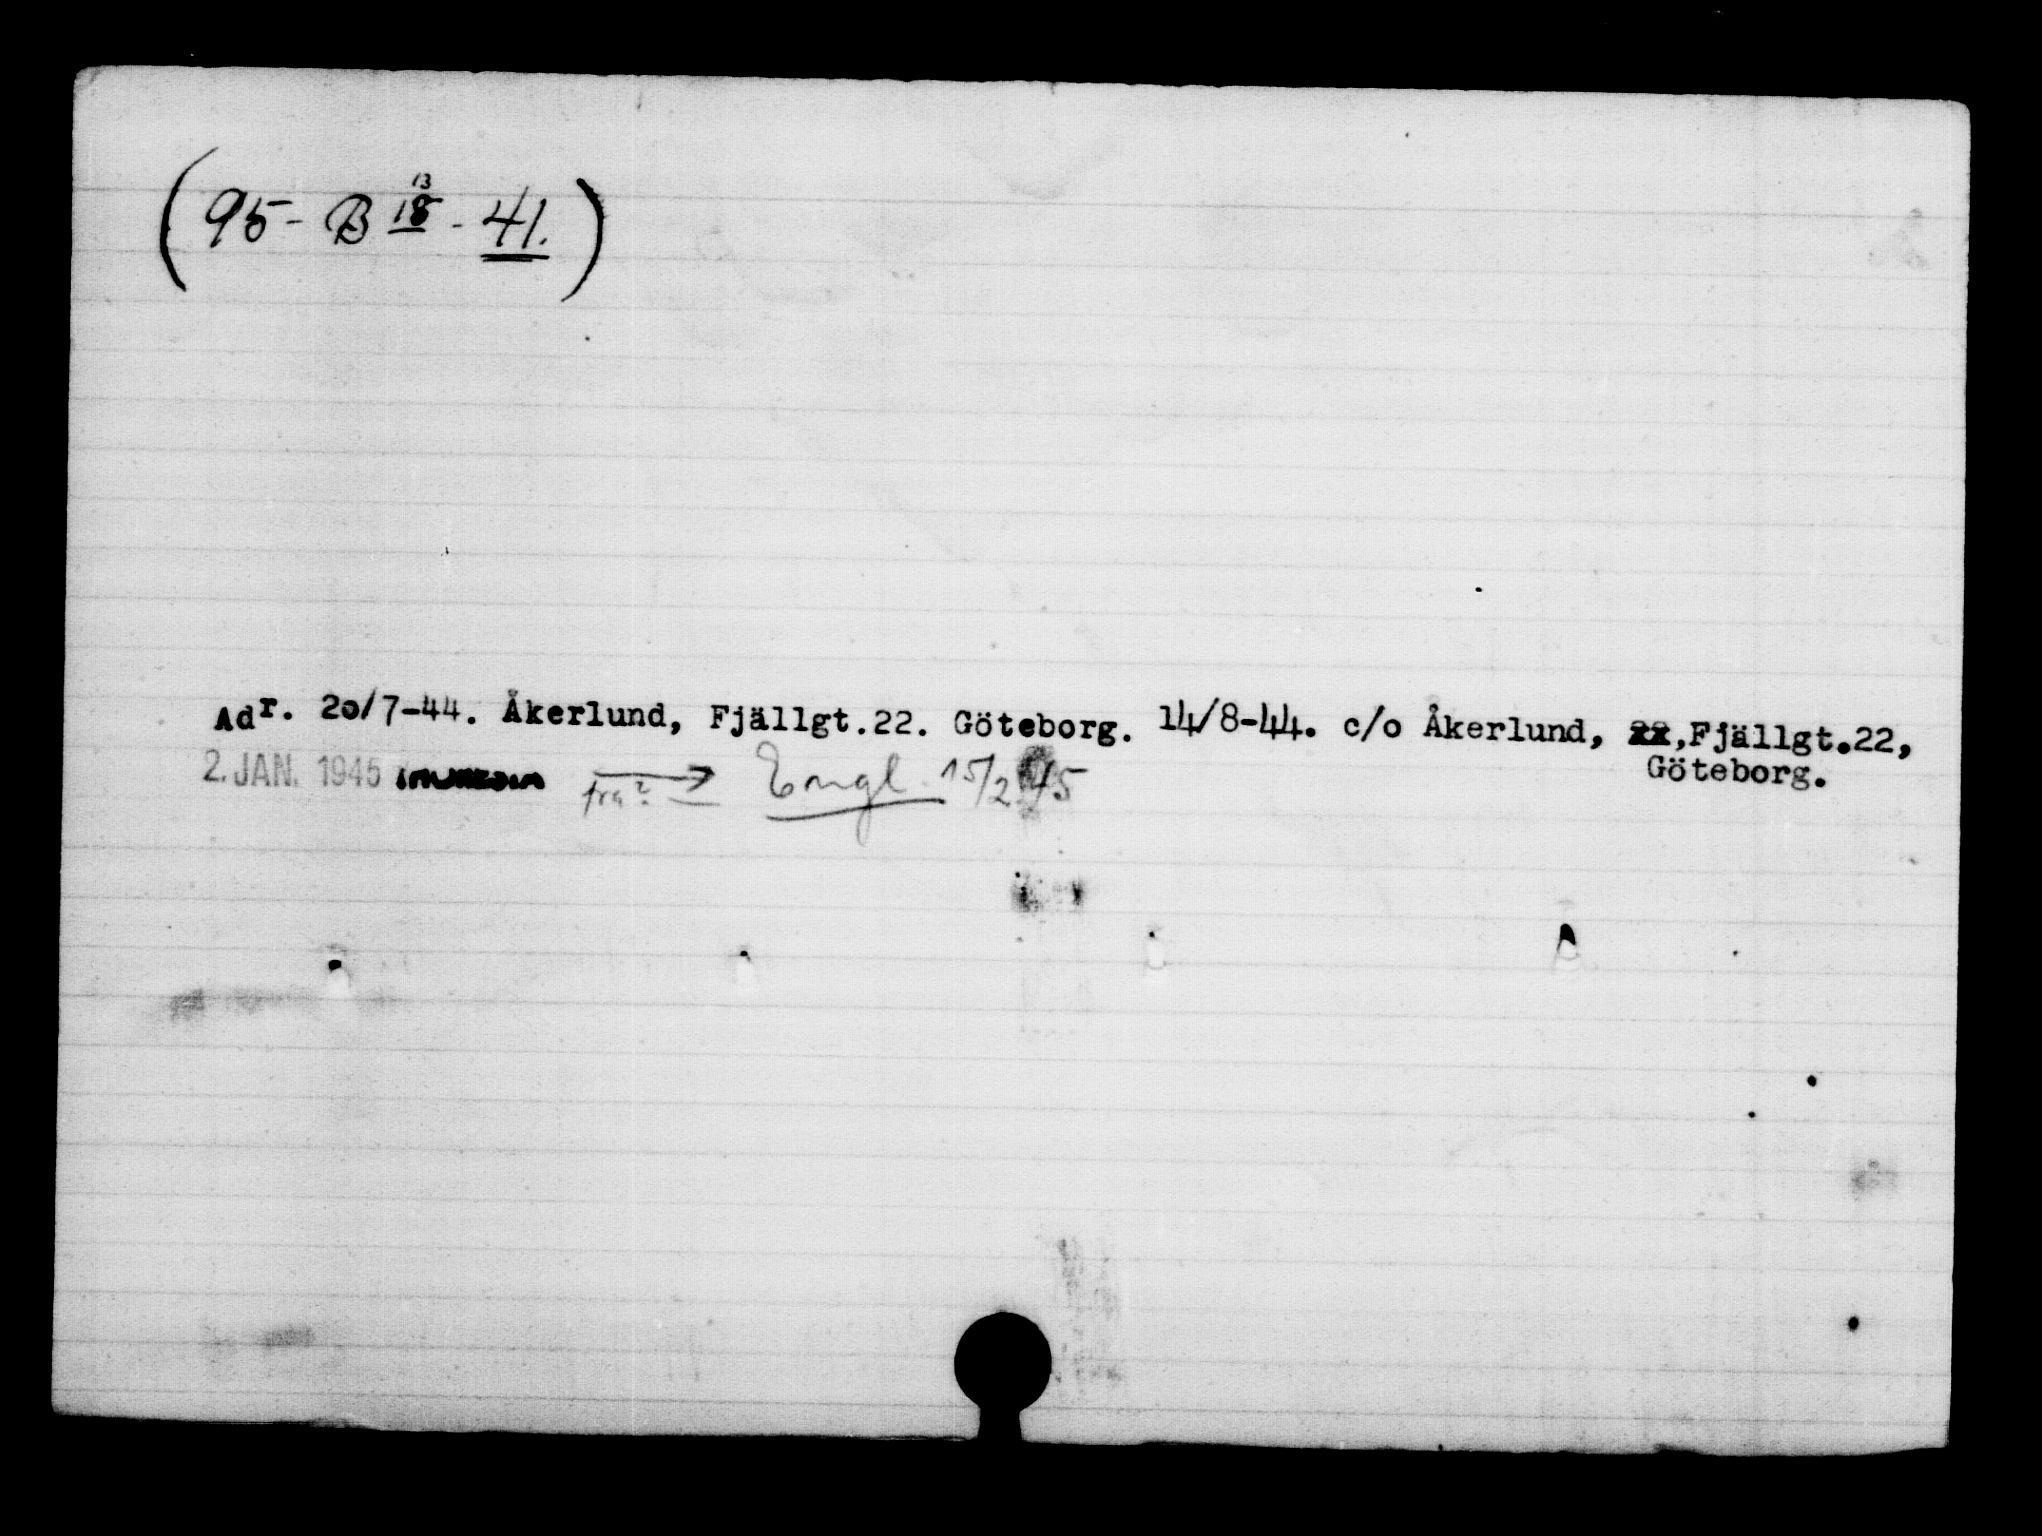 (95 - B 13 18 - 41.)
Adr. 20/7-44. Åkerlund, Fjällgt.22. Göteborg. 14/8-44. c/o Åkerlund, 22,Fjällgt.22,
Göteborg.
2. JAN. 1945 fra? → Engl. 15/2 45